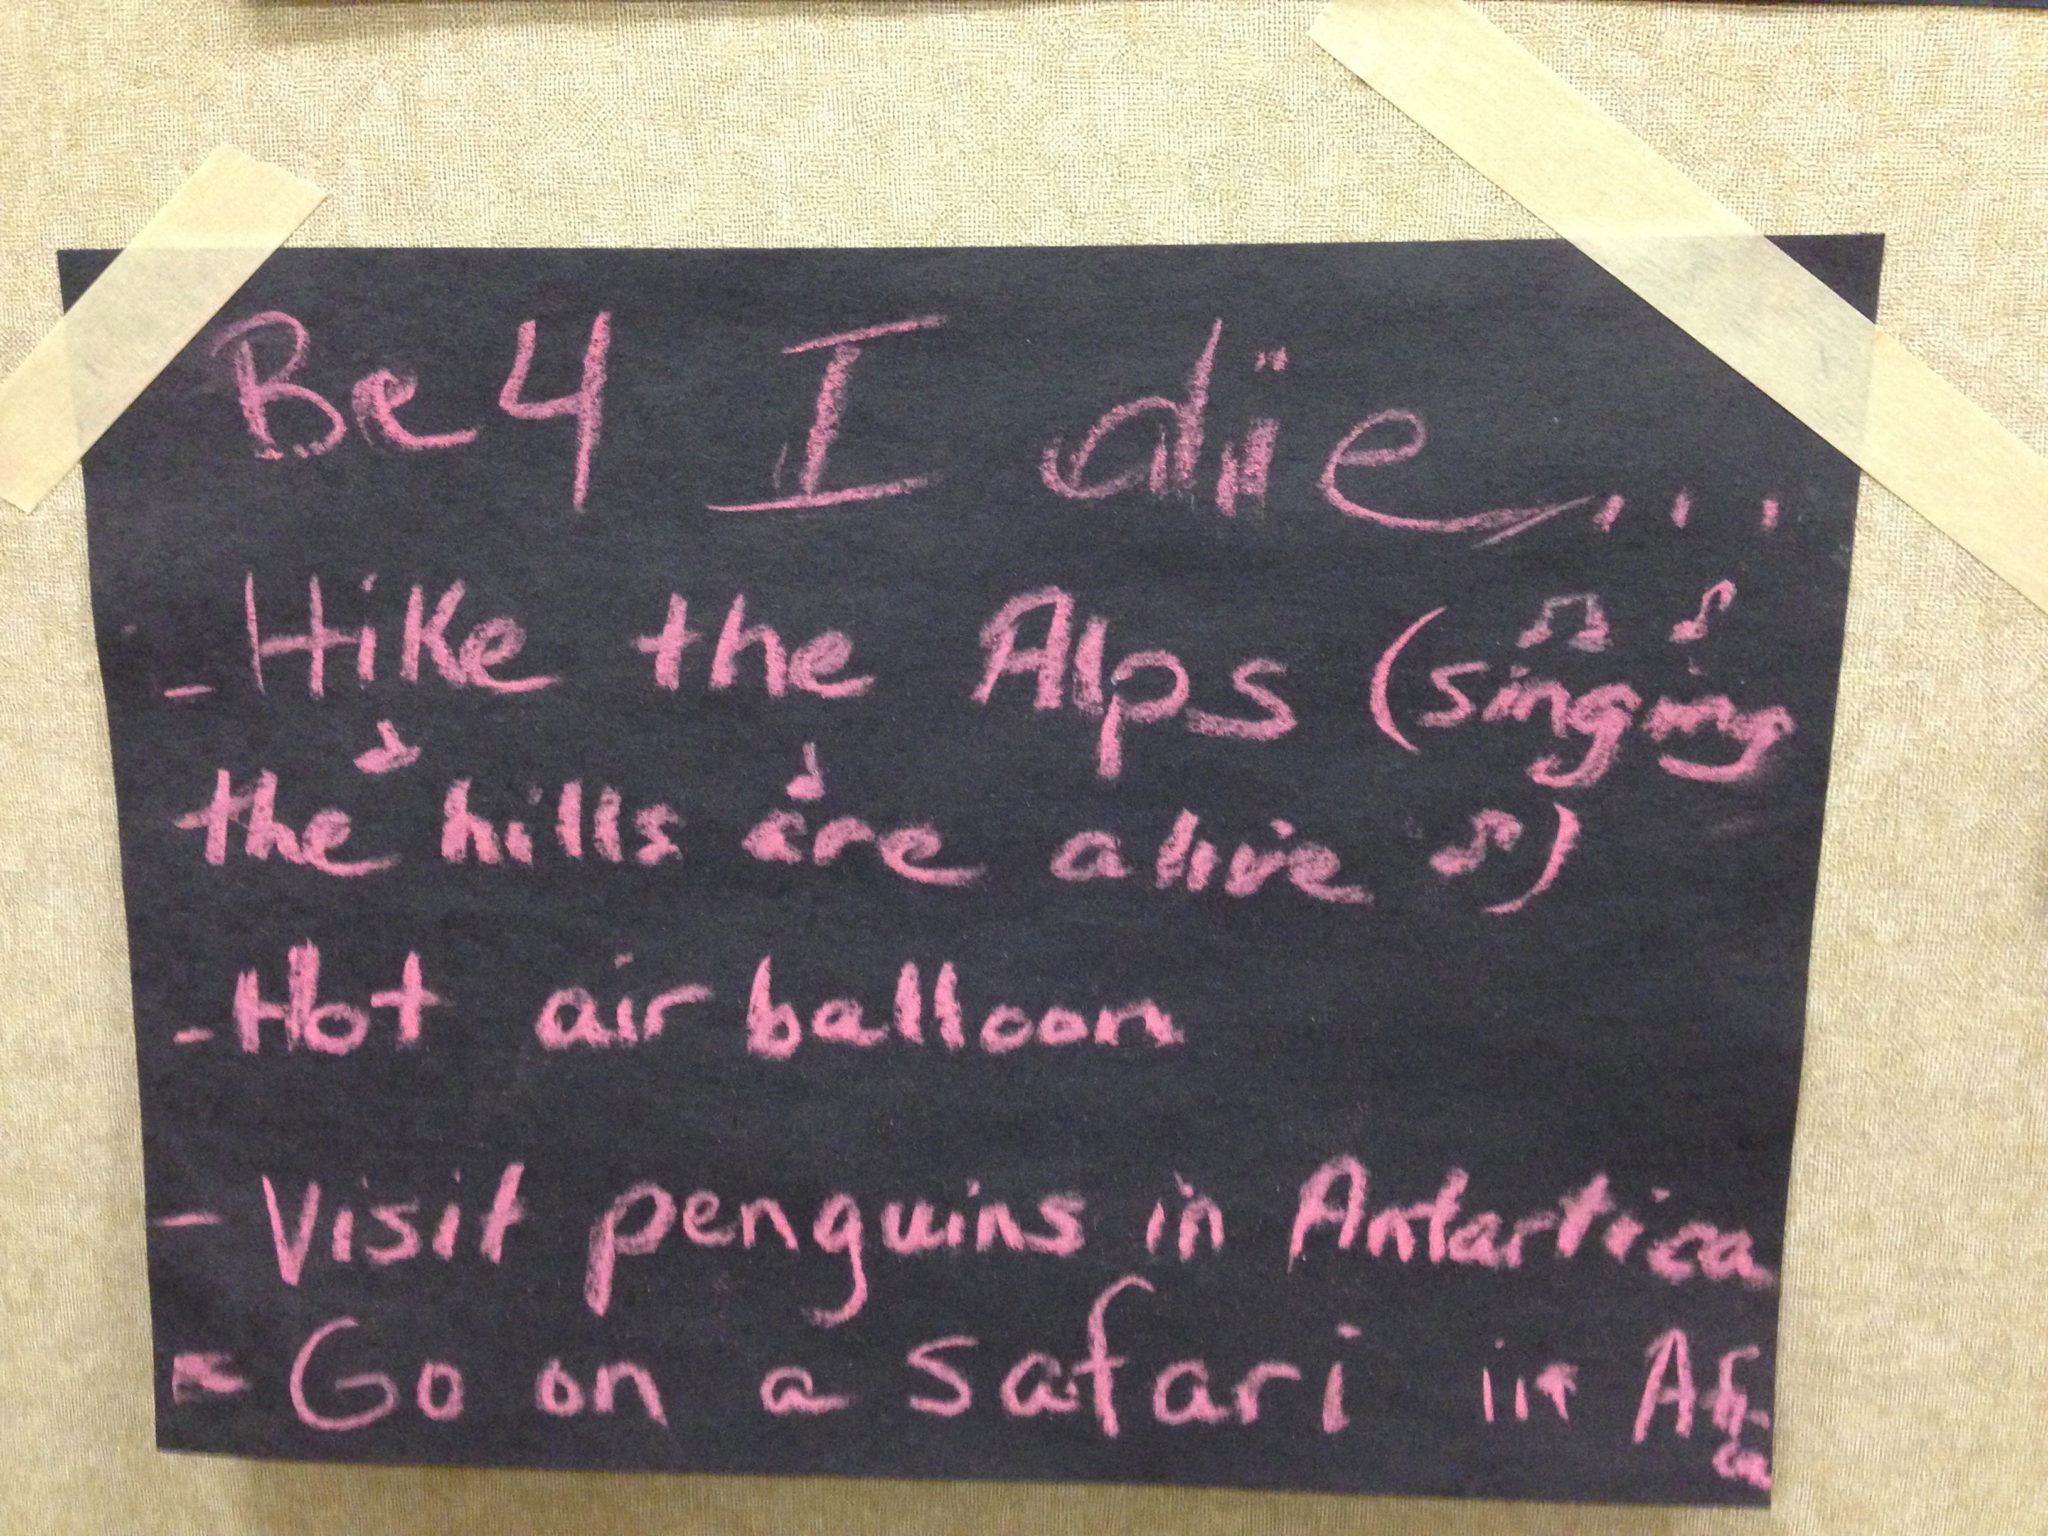 Be 4 I die...
- Hike the Alps (singing
the hills are alive ♫)
- Hot air balloon
- Visit penguins in Antartica
- Go on a safari in Afri-
ca